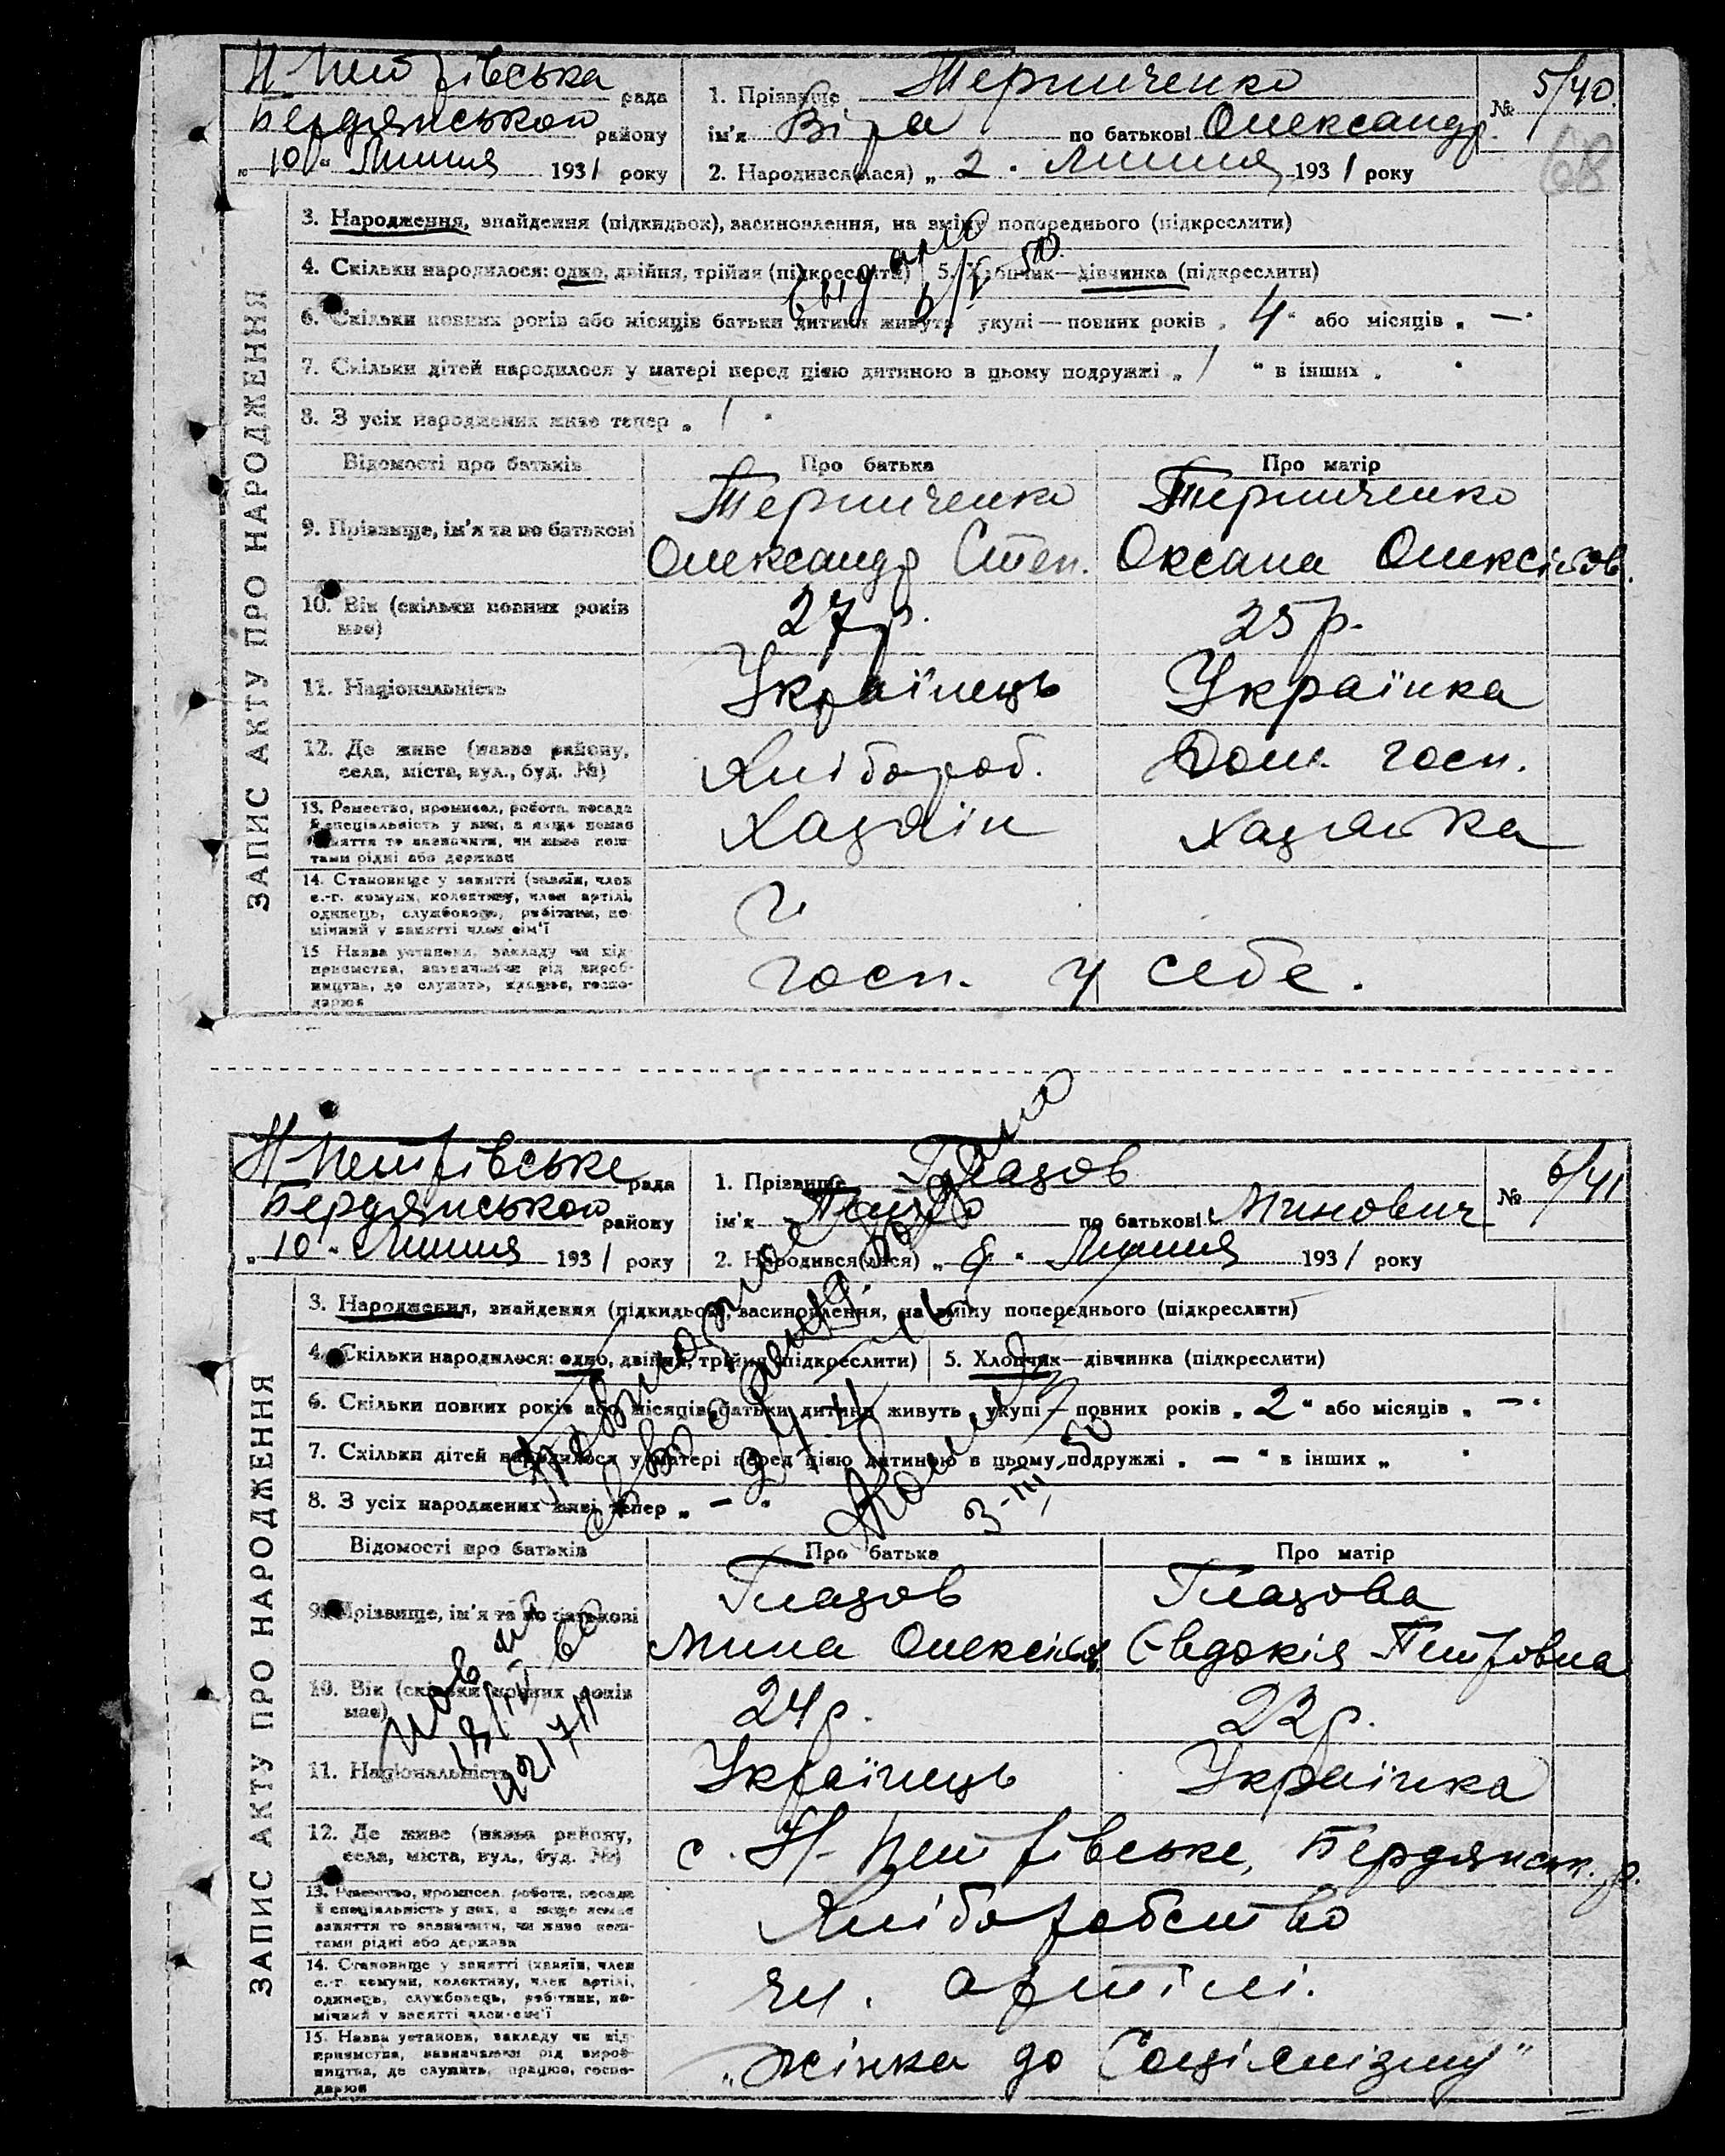 Н-Петрівська рада
Бердянського району
„10“ Липня 1931 року
1. Прізвище Терниченко
ім'я Віра по батькові Олександр.
2. Народився(лася) „2“ Липня 1931 року
№ 5/40
68
ЗАПИС АКТУ ПРО НАРОДЖЕННЯ
3. Народження, знайдення (підкидьок), засиновлення, на зміну попереднього (підкреслити)
4. Скільки народилося: одно, двійня, трійня (підкреслити) 5. Хлопчик—дівчинка (підкреслити)
6. Скільки повних років або місяців батьки дитини живуть укупі — повних років „4“ або місяців „—“
7. Скільки дітей народилося у матері перед цією дитиною в цьому подружжі „1“ в інших „ “
8. З усіх народжених живе тепер „1“
Відомості про батьків Про батька Про матір
9. Прізвище, ім'я та по батькові
Терниченко Терниченко
Олександр Степ. Оксана Олексіїов.
10. Вік (скільки повних років має) 27 р. 25 р.
11. Національність Українець Українка
12. Де живе (назва району, села, міста, вул., буд. №) Хлібороб. Дом. госп.
13. Ремество, промисел, робота, посада й спеціальність у них, а якщо немає заняття то зазначити, чи живе коштами рідні або держави
Хазяїн хазяйка
14. Становище у занятті (хазяїн, член с.-г. комуни, колективу, член артілі, одинець, службовець, робітник, помічний у занятті член сім'ї
15. Назва установи, закладу чи підприємства, зазначаючи рід виробництва, де служить, працює, господарює
госп. у себе.
Видано
50
Н-Петрівське рада
Бердянського району
„10“ Липня 1931 року
1. Прізвище Глазов
ім'я по батькові Минович
2. Народився(лася) „8“ Липня 1931 року
№ 6/41
ЗАПИС АКТУ ПРО НАРОДЖЕННЯ
3. Народження, знайдення (підкидьок), засиновлення, на зміну попереднього (підкреслити)
4. Скільки народилося: одно, двійня, трійня (підкреслити) 5. Хлопчик—дівчинка (підкреслити)
6. Скільки повних років або місяців батьки дитини живуть укупі — повних років „2“ або місяців „—“
7. Скільки дітей народилося у матері перед цією дитиною в цьому подружжі „—“ в інших „ “
8. З усіх народжених живі тепер „—“
Відомості про батьків Про батька Про матір
9. Прізвище, ім'я та по батькові
Глазов Глазова
Мина Олексійов. Євдокія Петровна
10. Вік (скільки повних років має) 24 р. 23 р.
11. Національність Українець Українка
12. Де живе (назва району, села, міста, вул., буд. №) с. Н-Петрівське, Бердянськ. р.
13. Ремество, промисел, робота, посада й спеціальність у них, а якщо немає заняття то зазначити, чи живе коштами рідні або держави
Хліборобство
14. Становище у занятті (хазяїн, член с.-г. комуни, колективу, член артілі, одинець, службовець, робітник, помічний у занятті член сім'ї
чл. артілі.
15. Назва установи, закладу чи підприємства, зазначаючи рід виробництва, де служить, працює, господарює
„Жінка до Соціялізму“
3-III-50